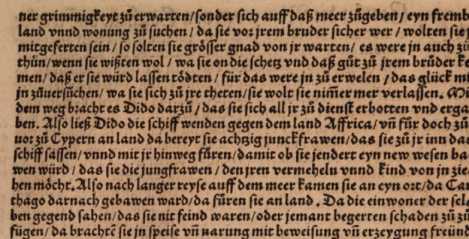 ner grimmigkeyt zů erwarten/sonder sich auff daß meer zůgeben/eyn fremb
land vnnd wonung zů suchen/da sie vor jrem bruder sicher wer/wolten sie
mitgeferten sein/so solten sie grösser gnad von jr warten/es were in auch zů
thůn/wenn sie wißten wol/wa sie on die schetz vnd daß gůt zů jrem brůder ke
men/daß er sie würd lassen tödten/für das were jn zů erwelen/das glück mi
in zůuersůchen/wa sie sich zů jre theten/sie wolt sie nim̃er mer verlassen. Mi
dem weg bracht es Dido darzů/das sie sich all jr zů dienst erbotten vnd erga
ben. Also ließ Dido die schiff wenden gegen dem land Affrica/vñ für doch zů
uor zů Cypern an land da bereyt sie achtzig junckfrawen/das sie zů jr inn da
schiff sassen/vnnd mit jr hinweg fůren/damit ob sie jendert eyn new wesen ba
wen würd/das sie die jungfrawen/den jren vermehelu vnnd kind von jn zie
hen möcht. Also nach langer reyse auff dem meer kamen sie an eyn ort/da Ca
thago darnach gebawen ward/da fůren sie an land. Da die einwoner der sel
ben gegend sahen/das sie nit feind waren/oder jemant begerten schaden zů zů
fügen/da brachtē sie in speise vñ narung mit beweisung vñ erzeygung freünd